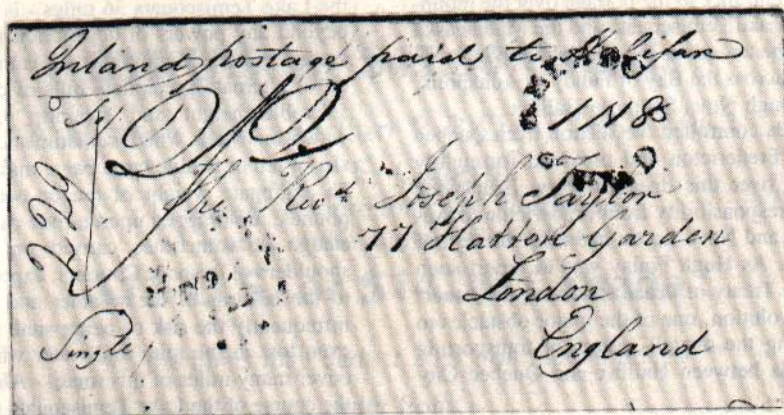 Inland postage paid to Halifax
1N8
The Revd. Joseph Taylor
77 Hatton Garden
London
England
229
Single